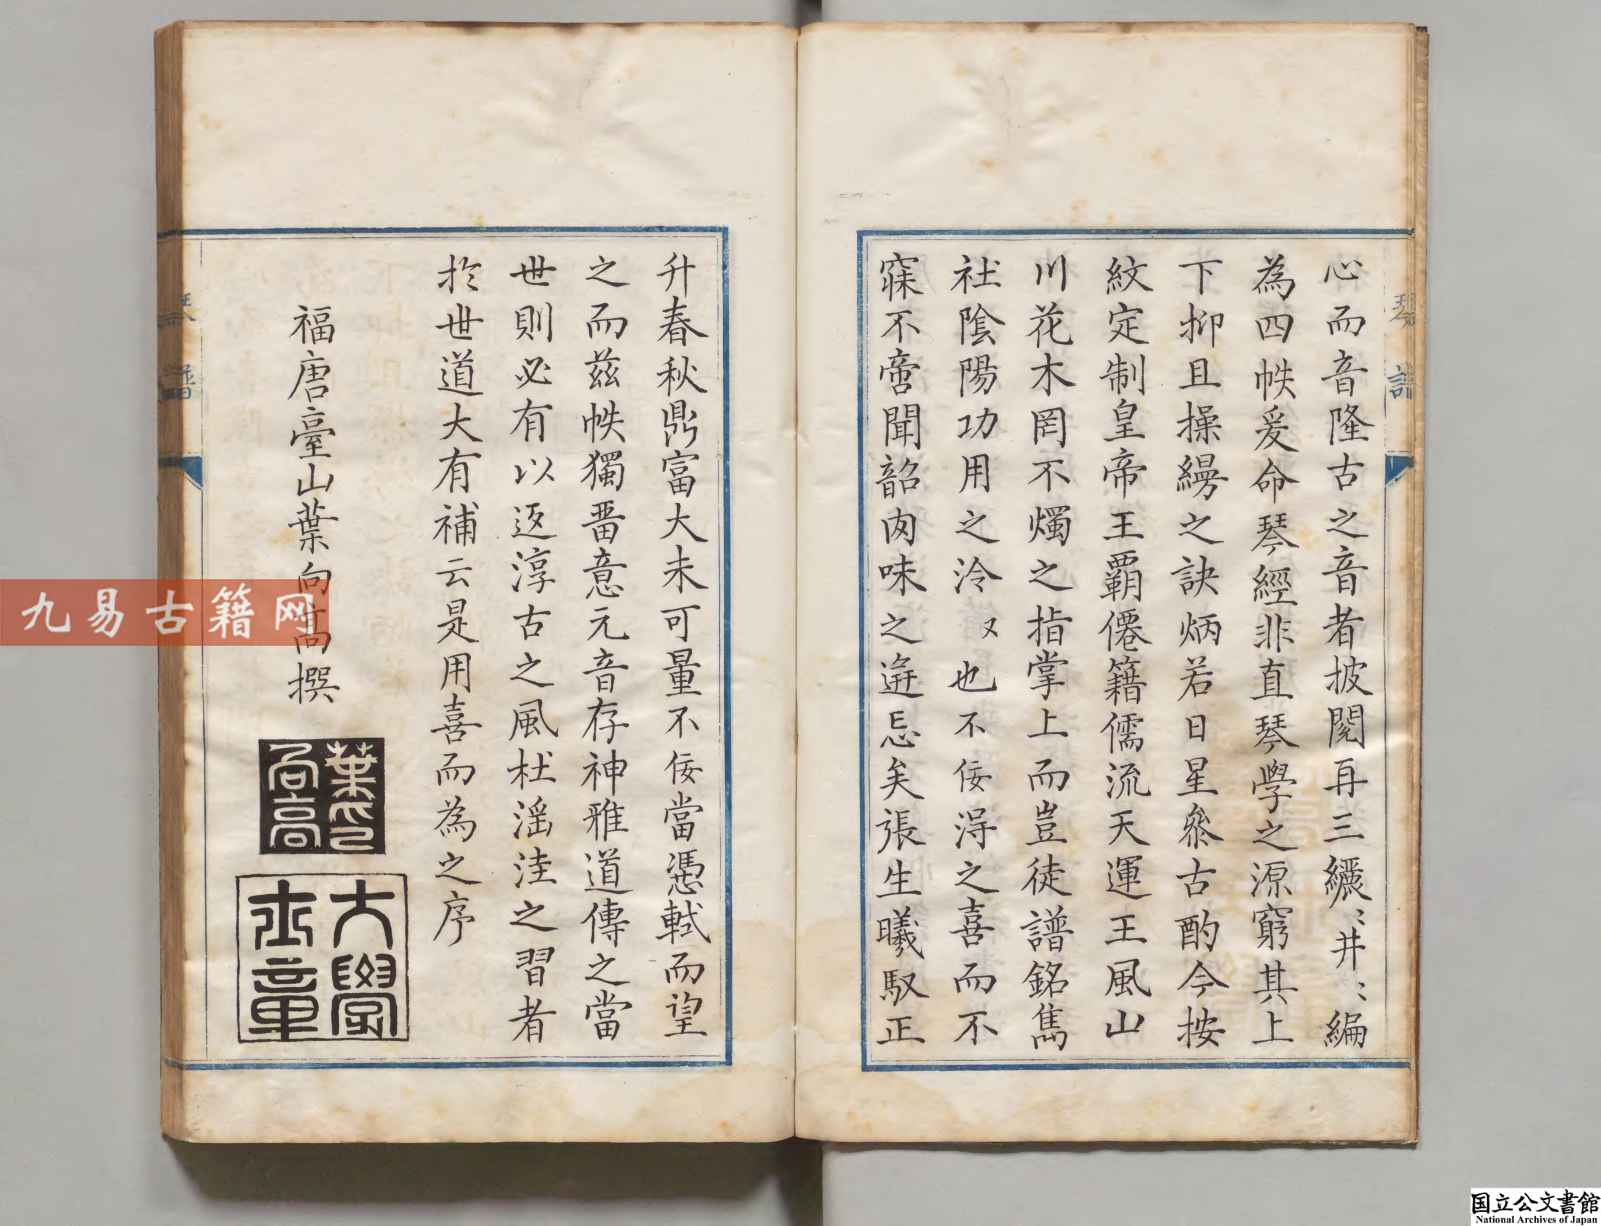 琴譜
心而音隆古之音者披閱再三纚〻井〻編
為四帙爰命琴經非直琴學之源窮其上
下抑且操縵之訣炳若日星叅古酌今按
紋定制皇帝王覇僊籍儒流天運王風山
川花木罔不燭之指掌上而豈徒譜銘雋
社陰陽功用之泠又也不佞淂之喜而不
寐不啻聞韶肉味之逬忘矣張生曦馭正
升春秋鼎富大未可量不佞當憑軾而望
之而茲帙獨畱意元音存神雅道傳之當
世則必有以返淳古之風杜滛洼之習者
扵世道大有補云是用喜而為之序
福唐臺山葉向高撰
葉向高印
大學士章
琴譜
九易古籍网
国立公文書館
National Archives of Japan